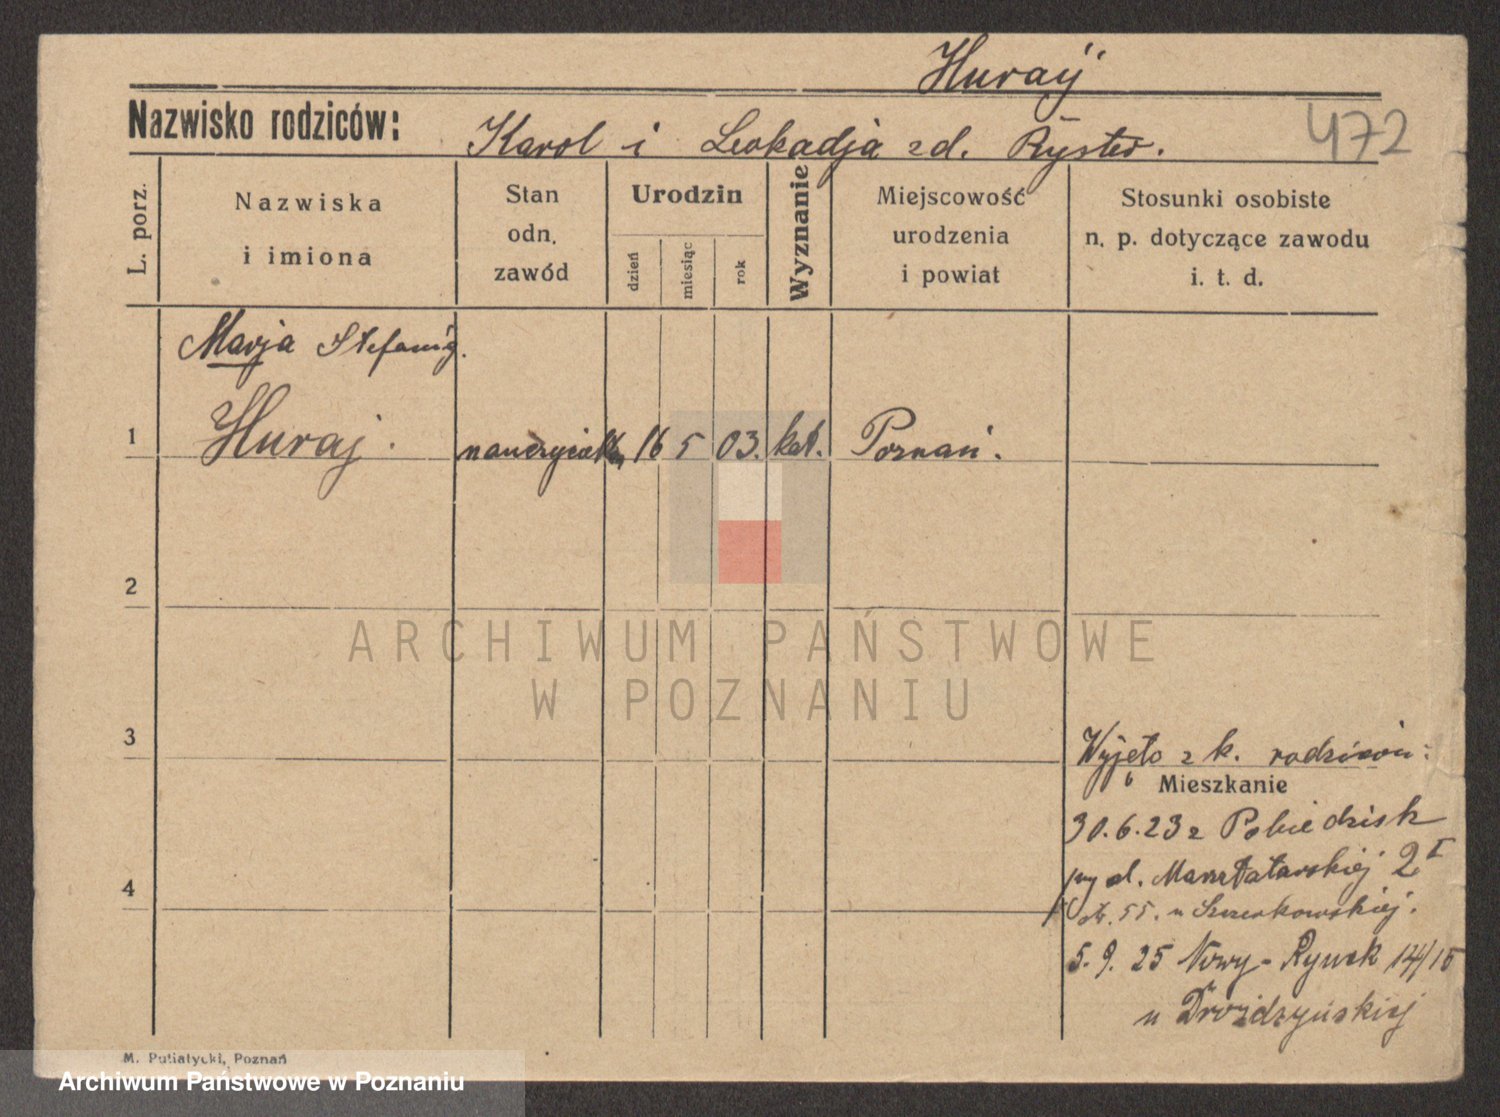 Huraj
Nazwisko rodziców: Karol i Leokadja zd. Ryster.
472
L. porz.
Nazwiska
i imiona
Stan
odn.
zawód
Urodzin
dzień
miesiąc
rok
Wyznanie
Miejscowość
urodzenia
i powiat
Stosunki osobiste
n. p. dotyczące zawodu
i. t. d.
Marja Stefanja
1 Huraj. nauczycielka 16 5 03. kat. Poznań.
2
ARCHIWUM PAŃSTWOWE
W POZNANIU
3
Wyjęto z k. rodziców
Mieszkanie
30.6.23 z Pobiedzisk
4
Masztalarskiej 2 I
55. u Szczerkowskiej.
5.9.25 Nowy-Rynek 14/15
u Drożdżyńskiej
M. Putiatycki, Poznań
Archiwum Państwowe w Poznaniu